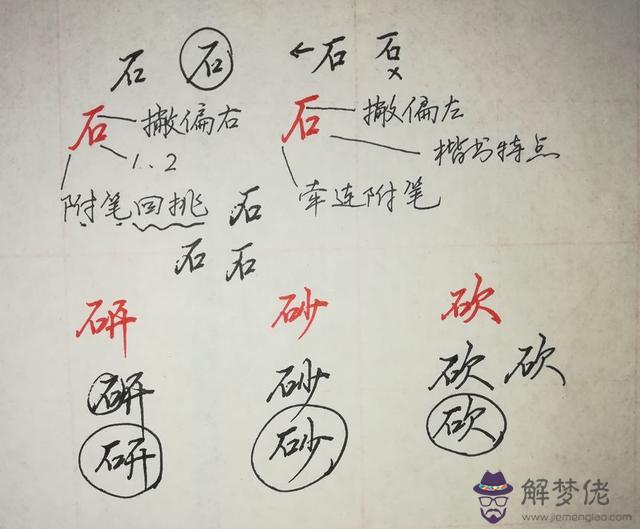 石 石 ← 石 石 ×
石 撇偏右 石 撇偏左
1.2 楷书特点
附笔回挑 石 牵连附笔
石 石
研 砂 砍
研 砂 砍 砍
研 砂 砍
解梦佬
www.jiemenglao.com